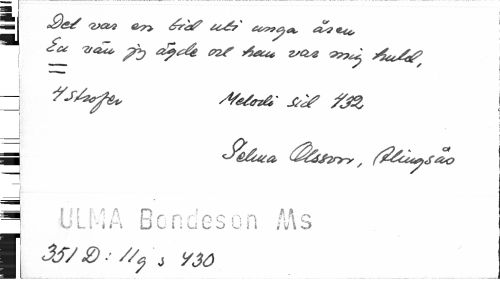 Det var en tid uti unga åren
En vän jg ägde och han var mig huld,
=
4 strofer Melodi sid 432
Selma Olsson, Alingsås
ULMA Bondeson Ms
351 D: 11g s 430